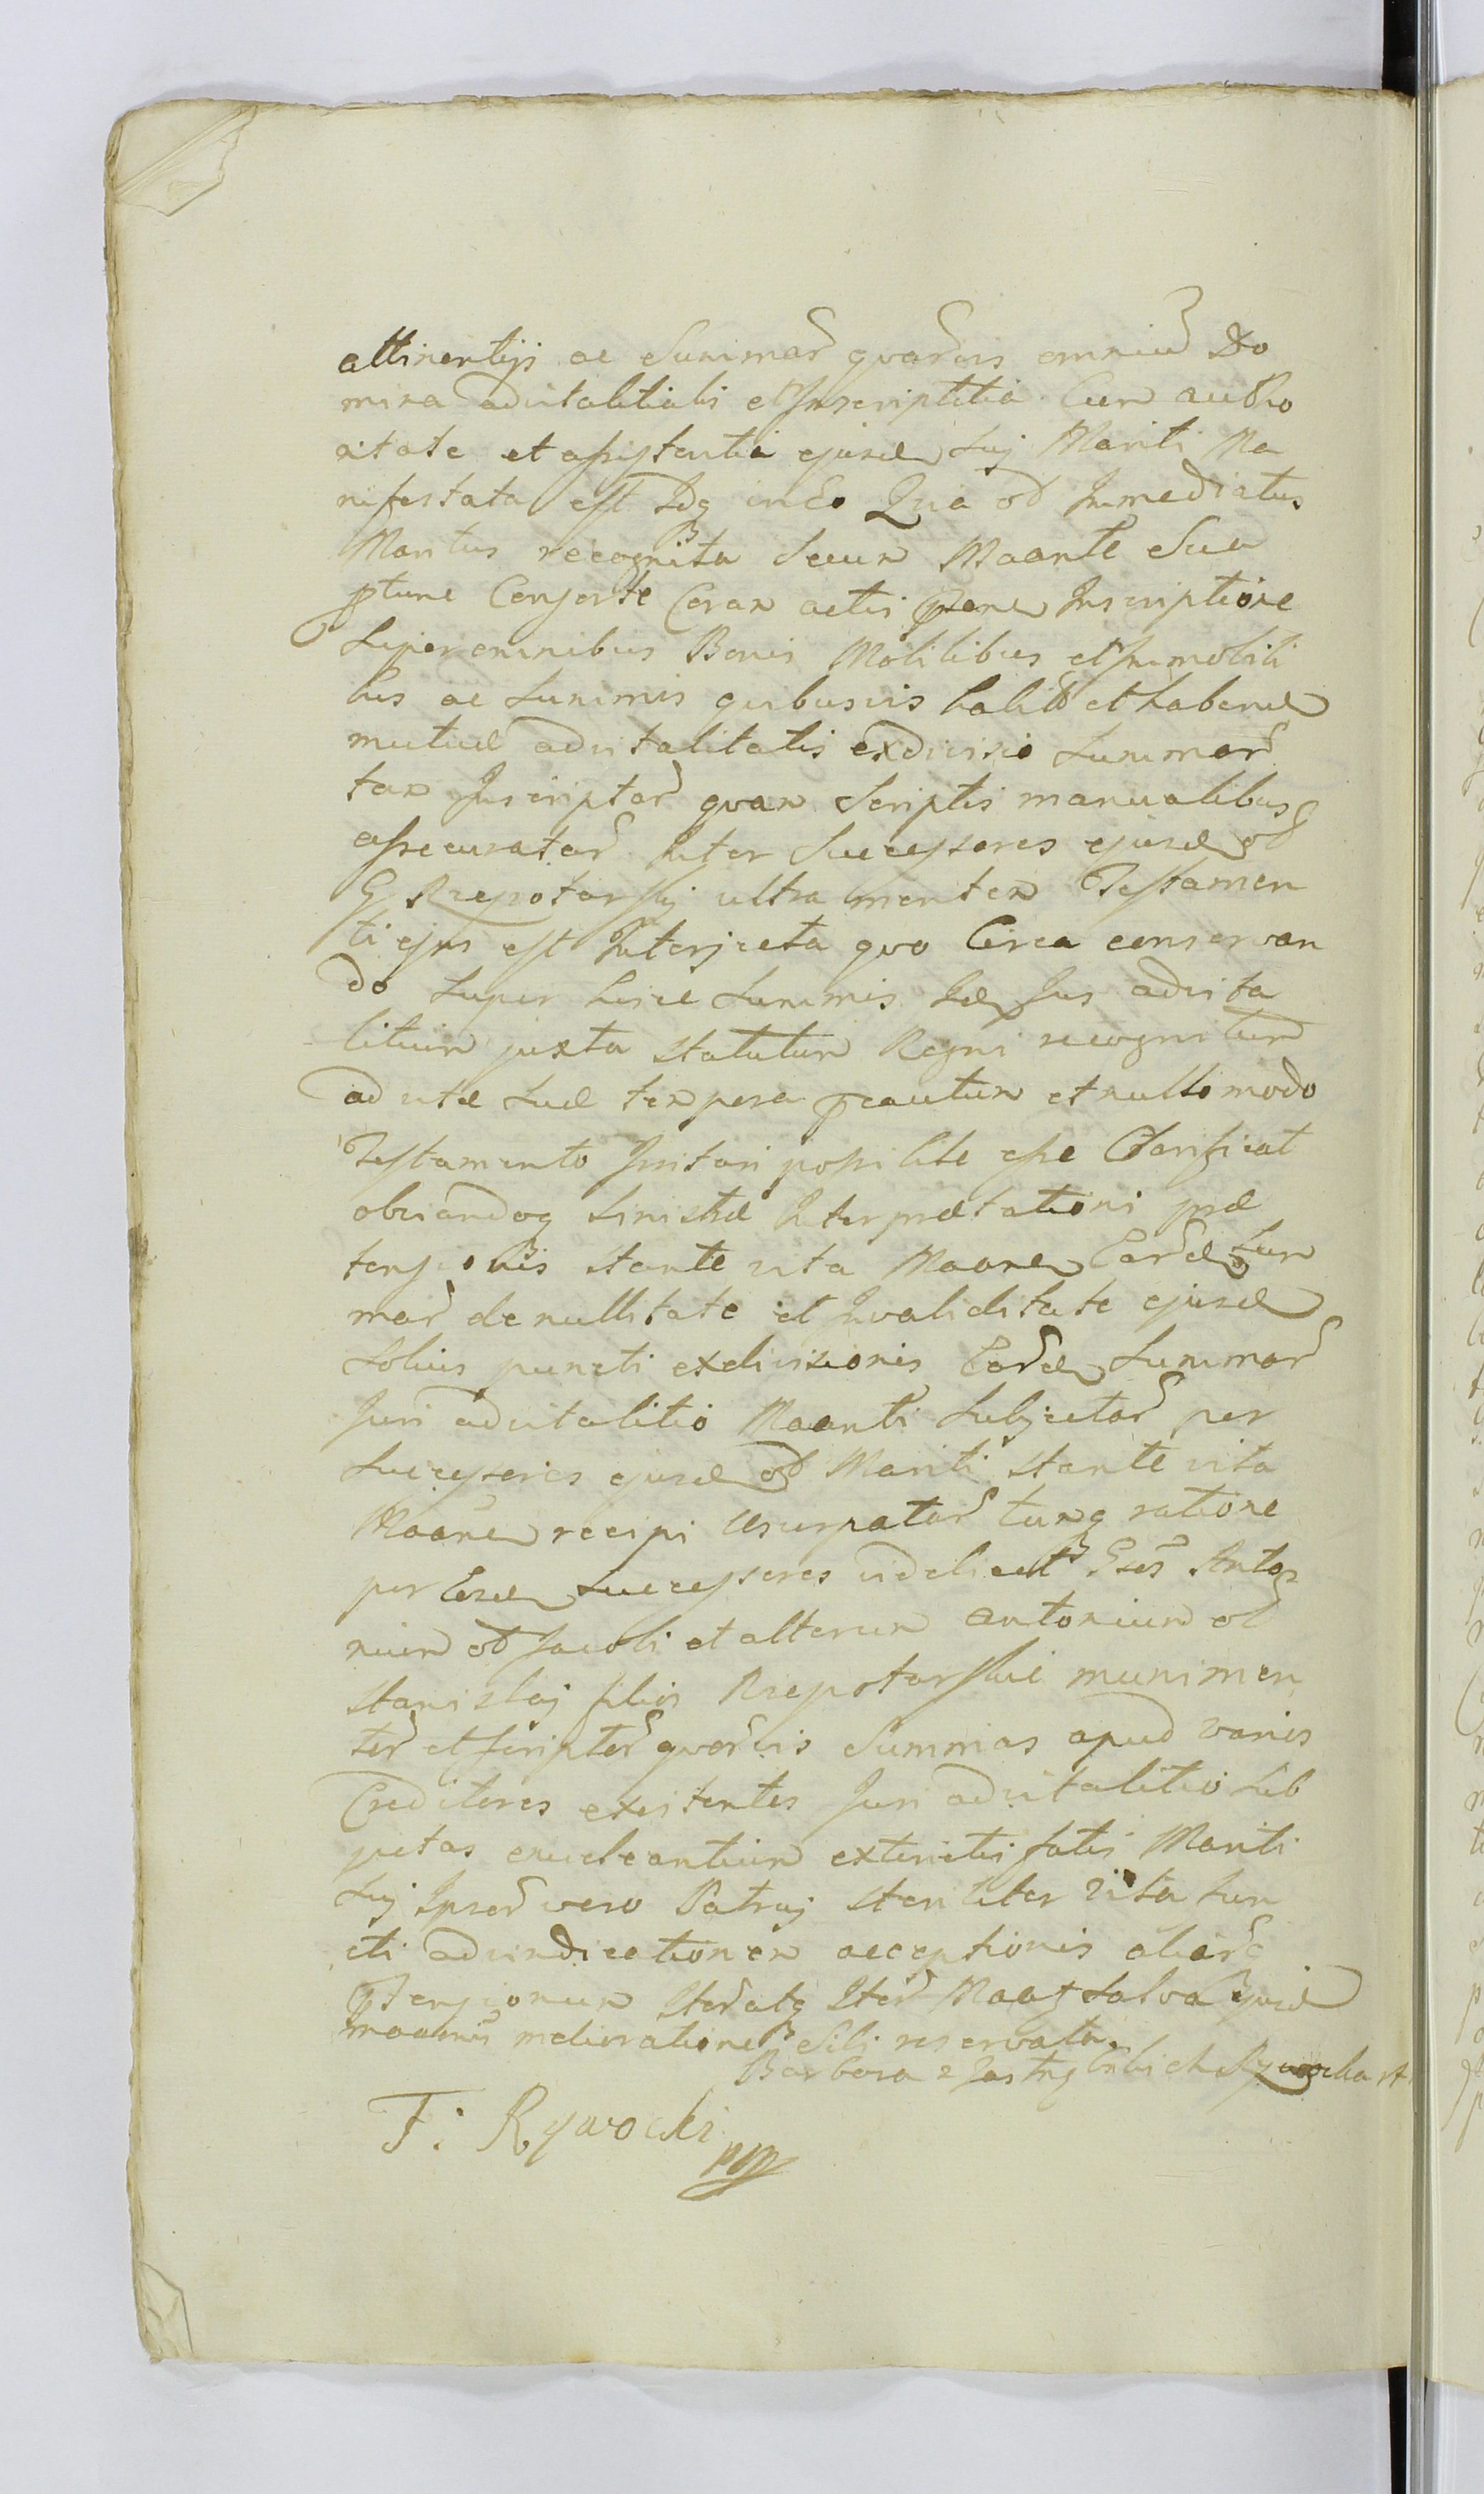 attinentijs ac Summar quarvis omniu Do
mina advitalitialis et Inscriptitia Cum autho
ritate et assistentia ejusd Suj Mariti Ma
nifestata est Idq in eo Quia od Immediatus
Maritus recognita Secum Maante Sua
ptunc Consorte Coram actis Inscriptione
Super omnibus Bonis Mobilibus et Immobili
bus ac Summis quibusvis habit et habend
mutuæ advitalitatis exdivisio Summar
tam Inscriptar quam Scriptis manualibus
assecuratar Inter Successores ejusd od
G Rzepotarskj ultra mentem Testamen
ti ejus est Interjecta quo Circa conservan
do Super hisce Summis Id Jus advita
litium juxta Statutum Regni recognitum
ad vitæ Suæ tempora cautum et nullo modo
Testamento Irritari possibile esse Clarificat
obviandoq Sinistræ Interpretationi præ
tensionis Stante vita Maanes Earde Sum
mar de nullitate et Invaliditate ejusd
Solius puncti exdivisionis Eard Summar
Juri advitalitio Maantis Subjectar per
Successores ejusd od Mariti Stante vita
Maanes recipi Usurpatar tumq ratione
per Eosd Successores videlicet Gsos Anto
nium od Jacobi et alterum Antonium od
Stanislaj filios Rzepotarskie munimen
tor et Scriptor quorvis Summas apud varios
Creditores existentes Juri advitalitio Sub
jectas enucleantium extinctis fatis Mariti
Suj Ipsor vero Patruj Steriliter vita fun
cti ad vindicationem acceptionis aliarq
ptensionum Iteratq Iter Maatq Salva
maanis melioratione Sibi reservata.
Barbara z Jas
F: Rywocki mpp